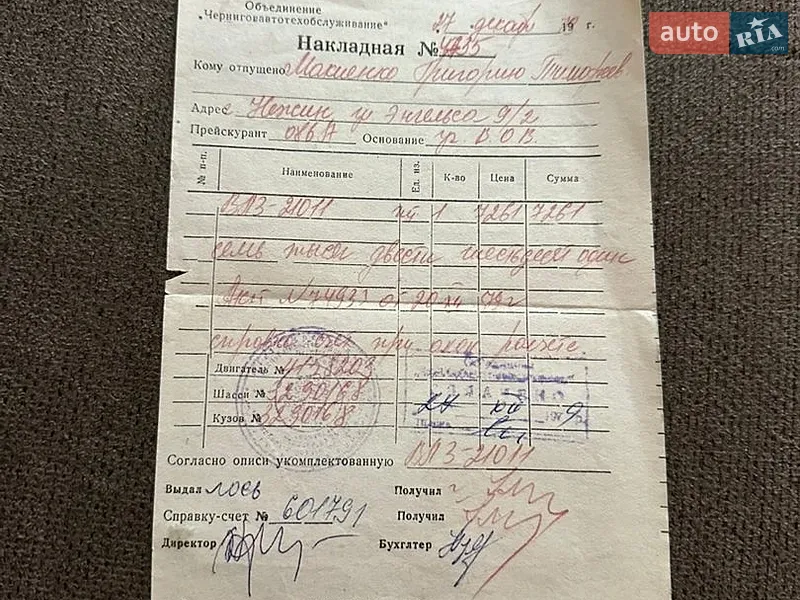 Объединение
"Черниговавтотехобслуживание"
27 декабря 19 г.
Накладная №
Кому отпущено Макиенко Григорию Тимофеев
Адрес г. Нежин ул Энгельса 9/2
Прейскурант 086А Основание гр. В.О.В.
№ п-п. Наименование Ед. из. К-во Цена Сумма
ВАЗ-21011 шт 1 7261 7261
семь тысяч двести шестьдесят один
Акт № 74933 от 20 XII 79 г
справка счет при окон расчете
Двигатель № 4158203
Шасси № 3290168
Кузов № 3290168
Согласно описи укомплектованную ВАЗ-21011
Выдал Лось Получил
Справку-счет № 601791 Получил
Директор Бухглтер
auto RIA .com